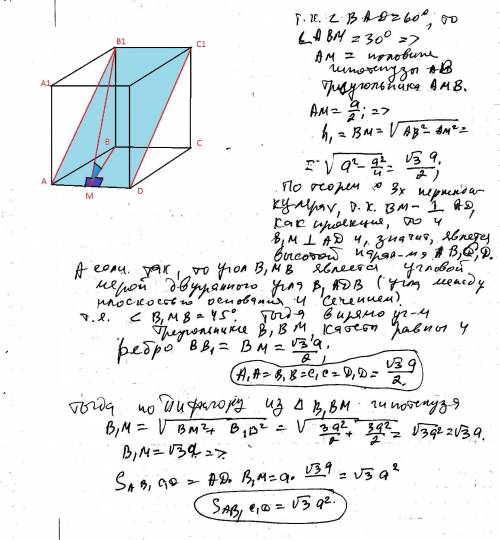 B1
C1
A1
B
C
A
M
D
т.к. ∠BAD=60°, то
∠ABM=30° =>
AM = половине
гипотенузы AB
треугольника AMB.
AM = a/2; =>
h₁ = BM = √(AB² - AM²) =
= √(a² - a²/4) = √3 a/2;
По теореме о 3х перпенди-
кулярах, т.к. BM - ⊥ AD,
как проекция, то и
B₁M ⊥ AD и, значит, является
высотой AB₁C₁D.
А если так, то угол B₁MB является угловой
мерой двугранного угла B₁ADB (угла между
плоскостью основания и сечением).
т.е. ∠B₁MB = 45°. Тогда в прямоуг-м
треугольнике B₁BM катеты равны и
ребро BB₁ = BM = √3 a/2;
A₁A = B₁B = C₁C = D₁D = √3 a/2
тогда по Пифагору из △ B₁BM гипотенуза
B₁M = √(BM² + B₁B²) = √(3a²/2 + 3a²/2) = √3a² = √3a.
B₁M = √3a =>
S AB₁C₁D = AD · B₁M = a · √3a = √3 a²
S AB₁C₁D = √3 a².